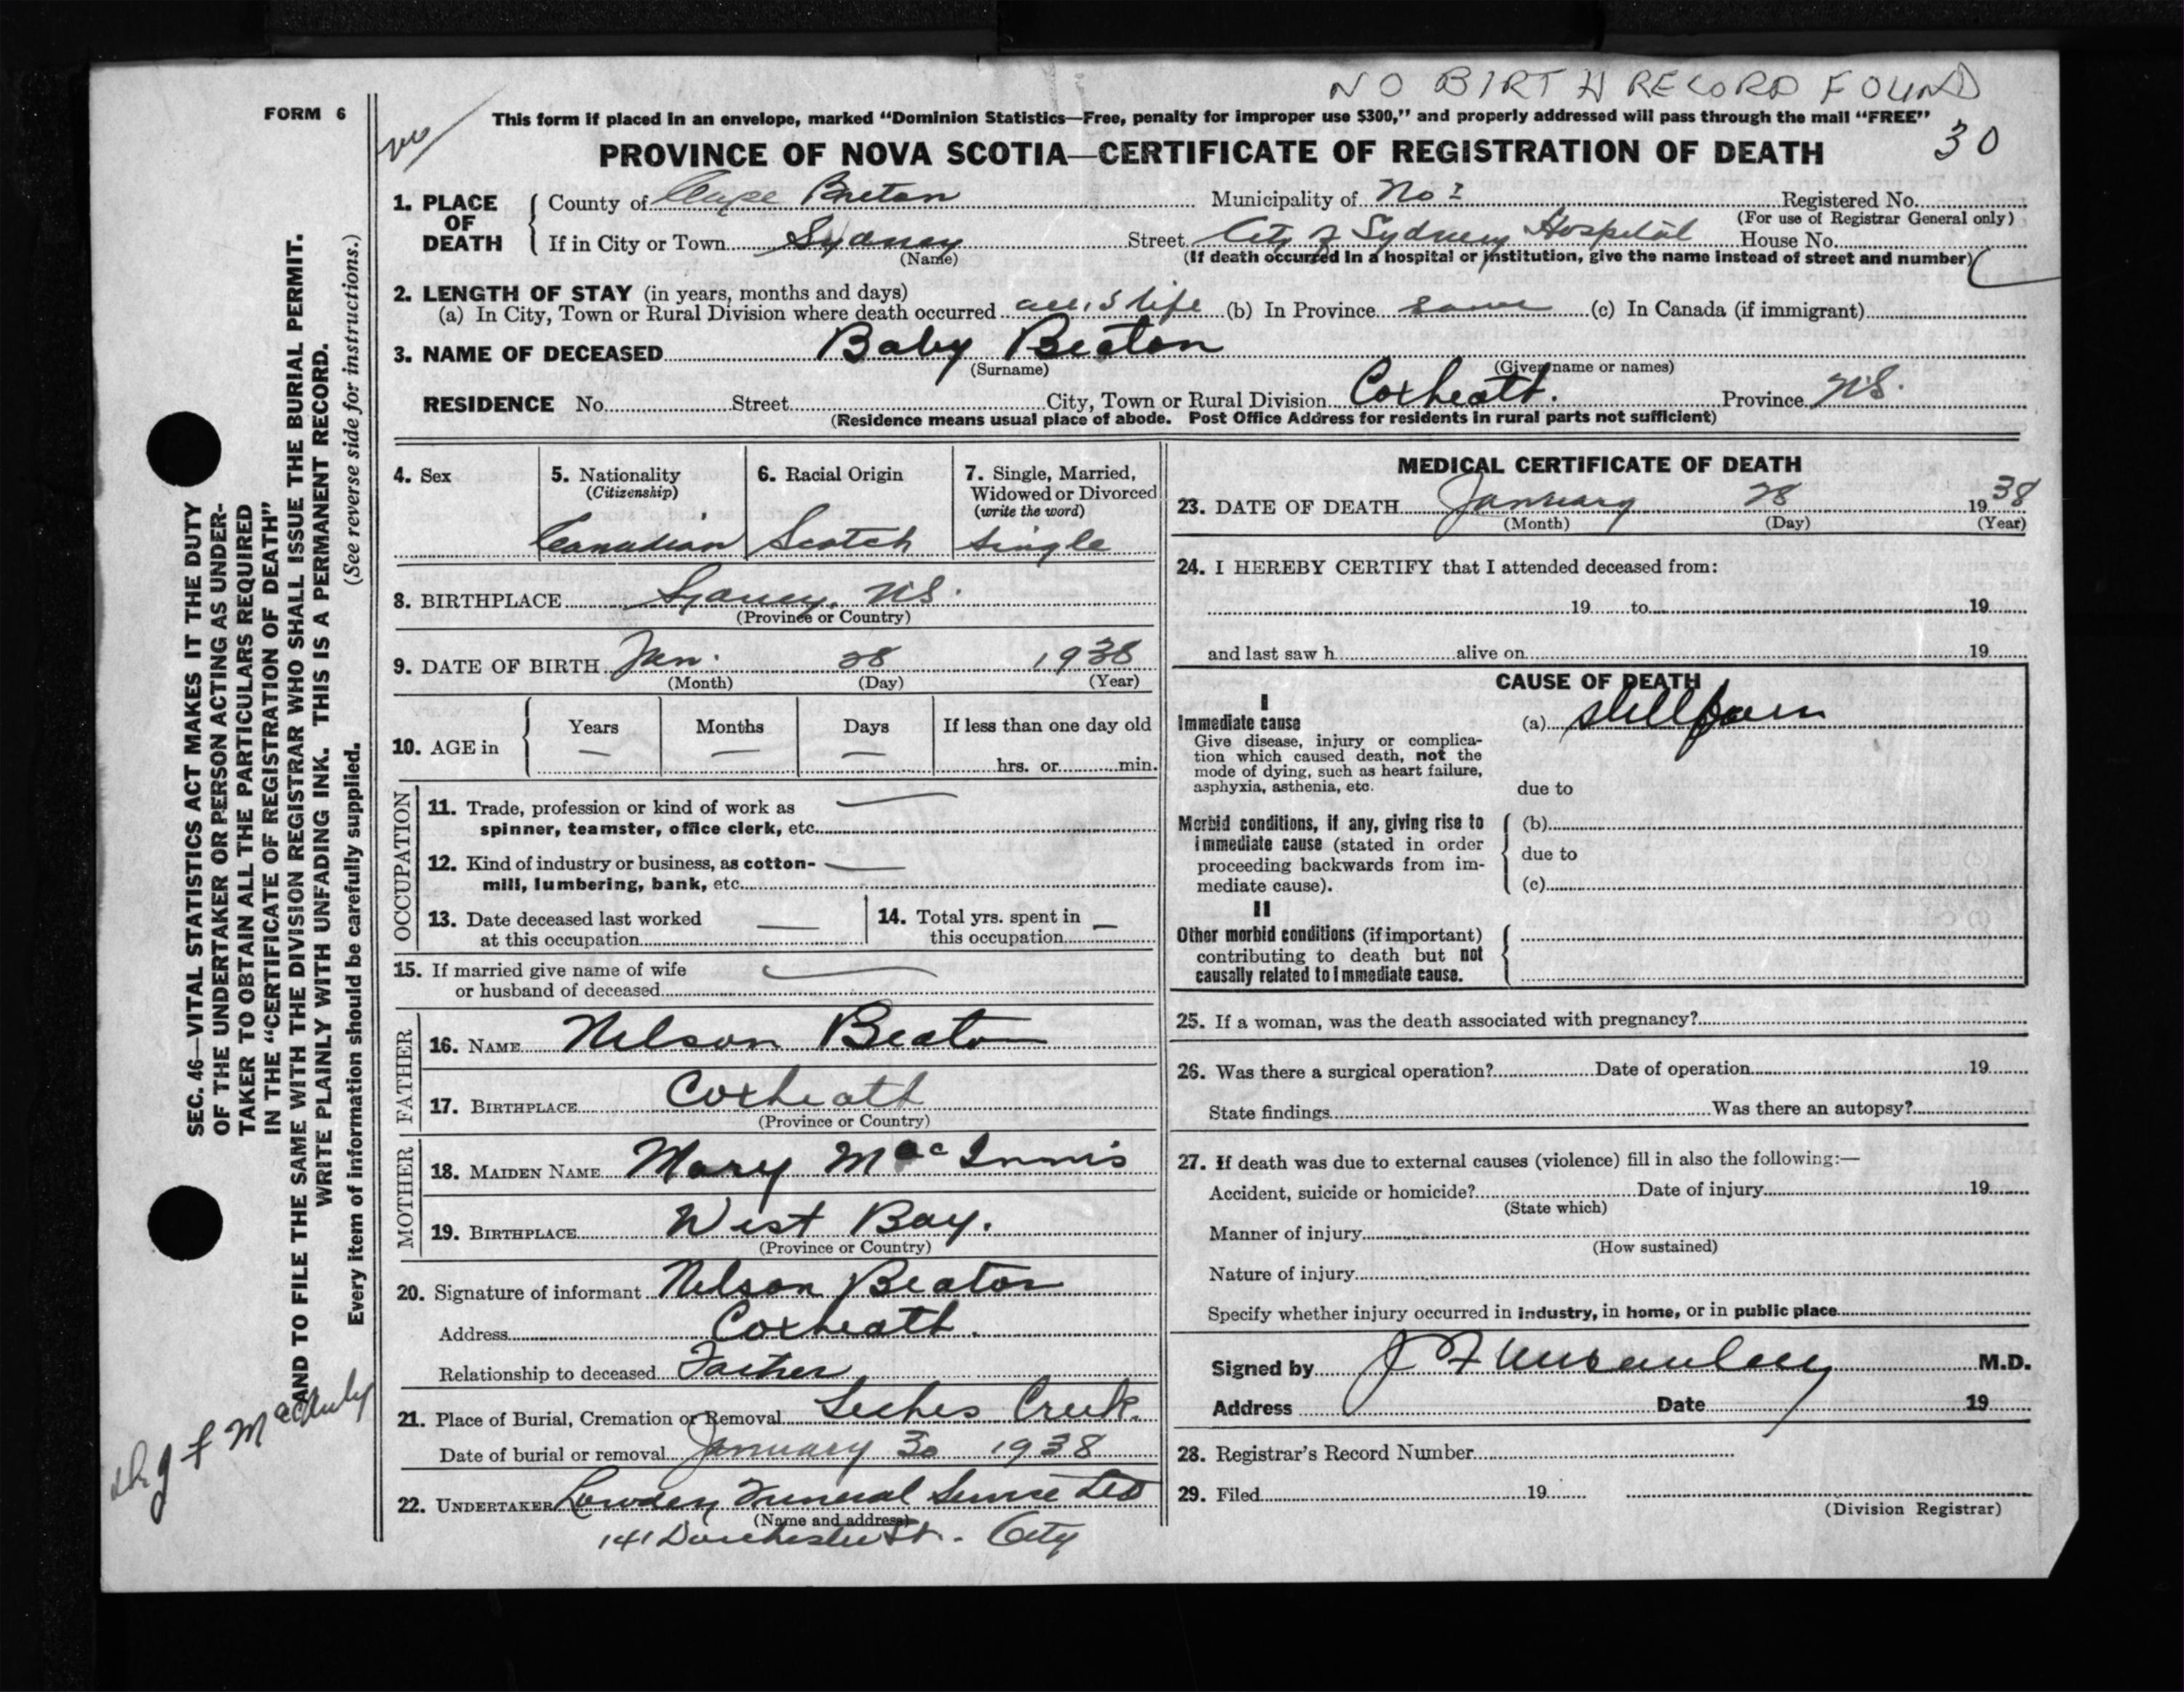 NO BIRTH RECORD FOUND
FORM 6
This form if placed in an envelope, marked “Dominion Statistics—Free, penalty for improper use $300,” and properly addressed will pass through the mail “FREE”
PROVINCE OF NOVA SCOTIA—CERTIFICATE OF REGISTRATION OF DEATH
30
1. PLACE OF DEATH
County of Cape Breton Municipality of No Registered No.
(For use of Registrar General only)
If in City or Town Sydney Street City of Sydney Hospital House No.
(Name) (If death occurred in a hospital or institution, give the name instead of street and number)
2. LENGTH OF STAY (in years, months and days)
(a) In City, Town or Rural Division where death occurred life (b) In Province same (c) In Canada (if immigrant)
3. NAME OF DECEASED Baby Beaton
(Surname) (Given name or names)
RESIDENCE No. Street City, Town or Rural Division Coxheath. Province N.S.
(Residence means usual place of abode. Post Office Address for residents in rural parts not sufficient)
4. Sex
5. Nationality
(Citizenship)
Canadian
6. Racial Origin
Scotch
7. Single, Married,
Widowed or Divorced
(write the word)
Single
8. BIRTHPLACE Sydney, N.S.
(Province or Country)
9. DATE OF BIRTH Jan. 28 1938
(Month) (Day) (Year)
10. AGE in
Years Months Days If less than one day old
— — —
hrs. or min.
OCCUPATION
11. Trade, profession or kind of work as
spinner, teamster, office clerk, etc. —
12. Kind of industry or business, as cotton-
mill, lumbering, bank, etc. —
13. Date deceased last worked
at this occupation —
14. Total yrs. spent in
this occupation —
15. If married give name of wife
or husband of deceased —
FATHER
16. NAME Nelson Beaton
17. BIRTHPLACE Coxheath
(Province or Country)
MOTHER
18. MAIDEN NAME Mary MacInnis
19. BIRTHPLACE West Bay.
(Province or Country)
20. Signature of informant Nelson Beaton
Address Coxheath.
Relationship to deceased Father
21. Place of Burial, Cremation or Removal Leches Creek.
Date of burial or removal January 30 1938
22. UNDERTAKER Lowden Funeral Service Ltd
(Name and address)
141 Dorchester St. City
MEDICAL CERTIFICATE OF DEATH
23. DATE OF DEATH January 28 1938
(Month) (Day) (Year)
24. I HEREBY CERTIFY that I attended deceased from:
19 to 19
and last saw h alive on 19
CAUSE OF DEATH
I
Immediate cause (a) stillborn
Give disease, injury or complica-
tion which caused death, not the
mode of dying, such as heart failure,
asphyxia, asthenia, etc.
due to
Morbid conditions, if any, giving rise to
immediate cause (stated in order
proceeding backwards from im-
mediate cause).
(b)
due to
(c)
II
Other morbid conditions (if important)
contributing to death but not
causally related to immediate cause.
25. If a woman, was the death associated with pregnancy?
26. Was there a surgical operation? Date of operation 19
State findings Was there an autopsy?
27. If death was due to external causes (violence) fill in also the following:—
Accident, suicide or homicide? Date of injury 19
(State which)
Manner of injury
(How sustained)
Nature of injury
Specify whether injury occurred in industry, in home, or in public place
Signed by M.D.
Address Date 19
28. Registrar's Record Number
29. Filed 19
(Division Registrar)
SEC. 46—VITAL STATISTICS ACT MAKES IT THE DUTY
OF THE UNDERTAKER OR PERSON ACTING AS UNDER-
TAKER TO OBTAIN ALL THE PARTICULARS REQUIRED
IN THE “CERTIFICATE OF REGISTRATION OF DEATH”
AND TO FILE THE SAME WITH THE DIVISION REGISTRAR WHO SHALL ISSUE THE BURIAL PERMIT.
WRITE PLAINLY WITH UNFADING INK. THIS IS A PERMANENT RECORD.
Every item of information should be carefully supplied. (See reverse side for instructions.)